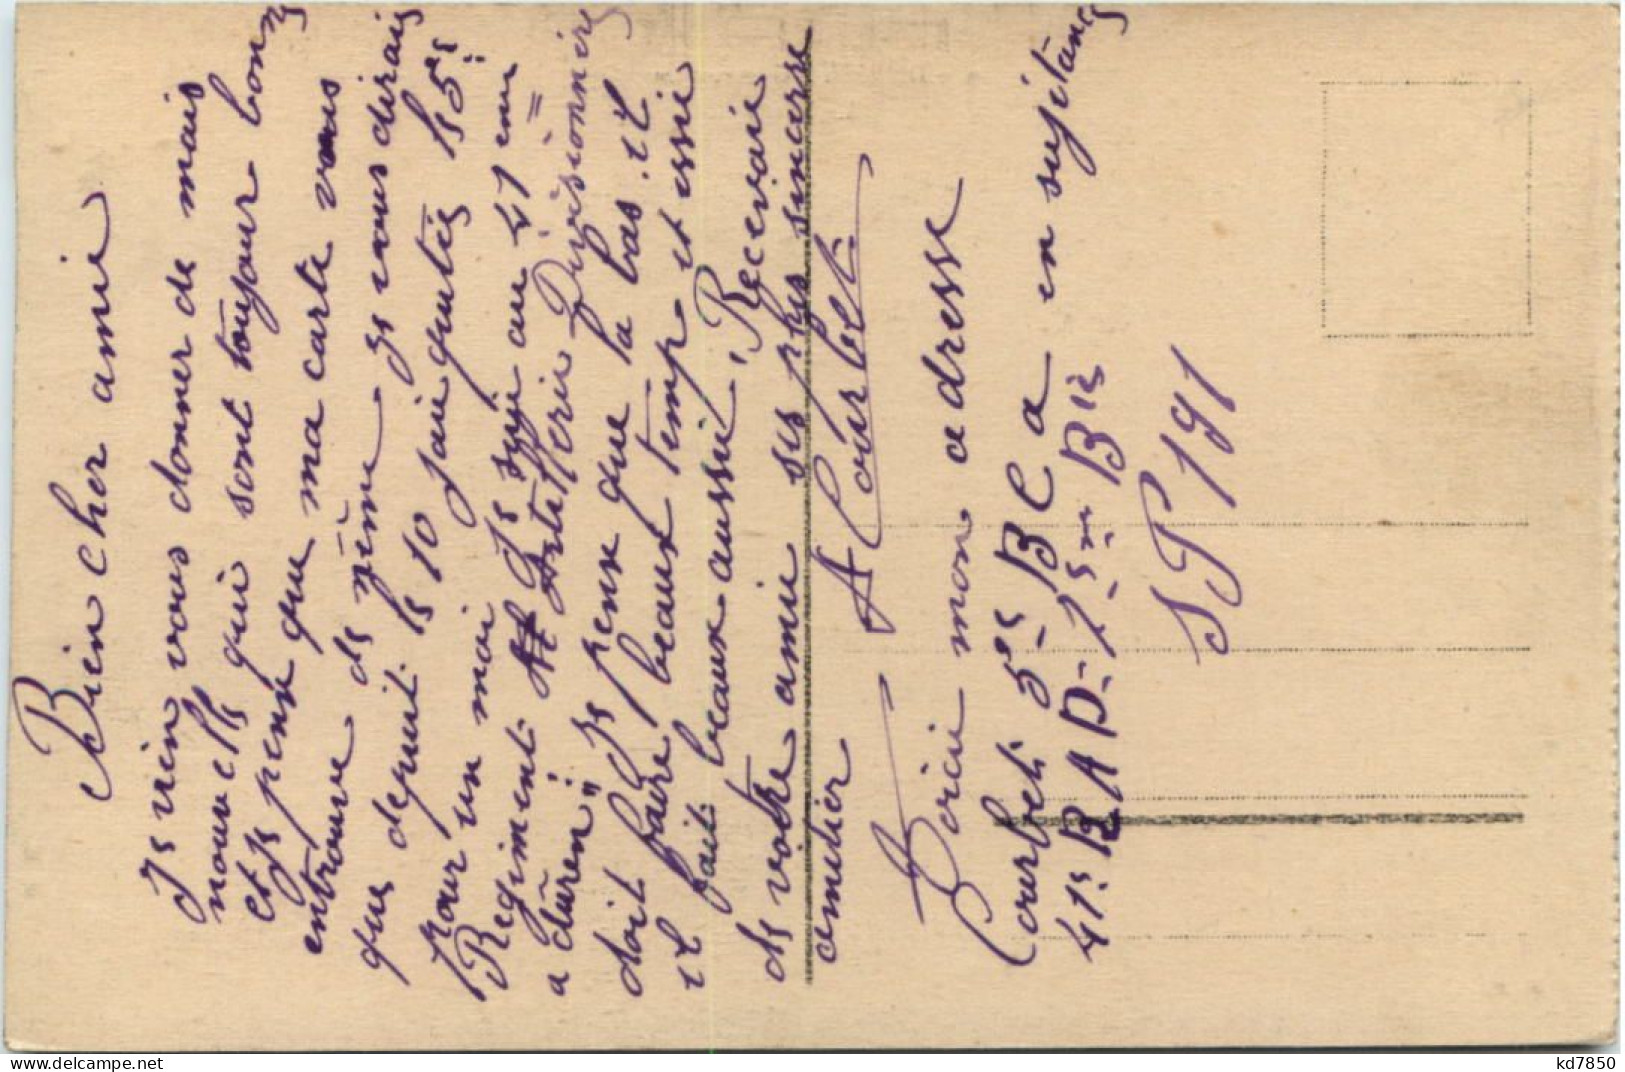 Bien cher amie
Je vien vous donner de mais
nouvelle qui sont toujour bonne
et je pense que ma carte vous
entrouve de même je vous dirais
que depuit le 10 jaie quutés le 5e
pour un moi Je suie au 41 em
Regiment Artillerie Divisionnier
a düren Je pense que la bas il
doit faire beaux temp et issie
il fait beaux aussie, Recevoie
de votre amie ses plus sincerse
amitier
A Courbet
Voicie mon adresse
Courbet 5e B C a en sujitance
41e R A D - 7 5m Bis
SP 191
www.delcampe.net
kd7850